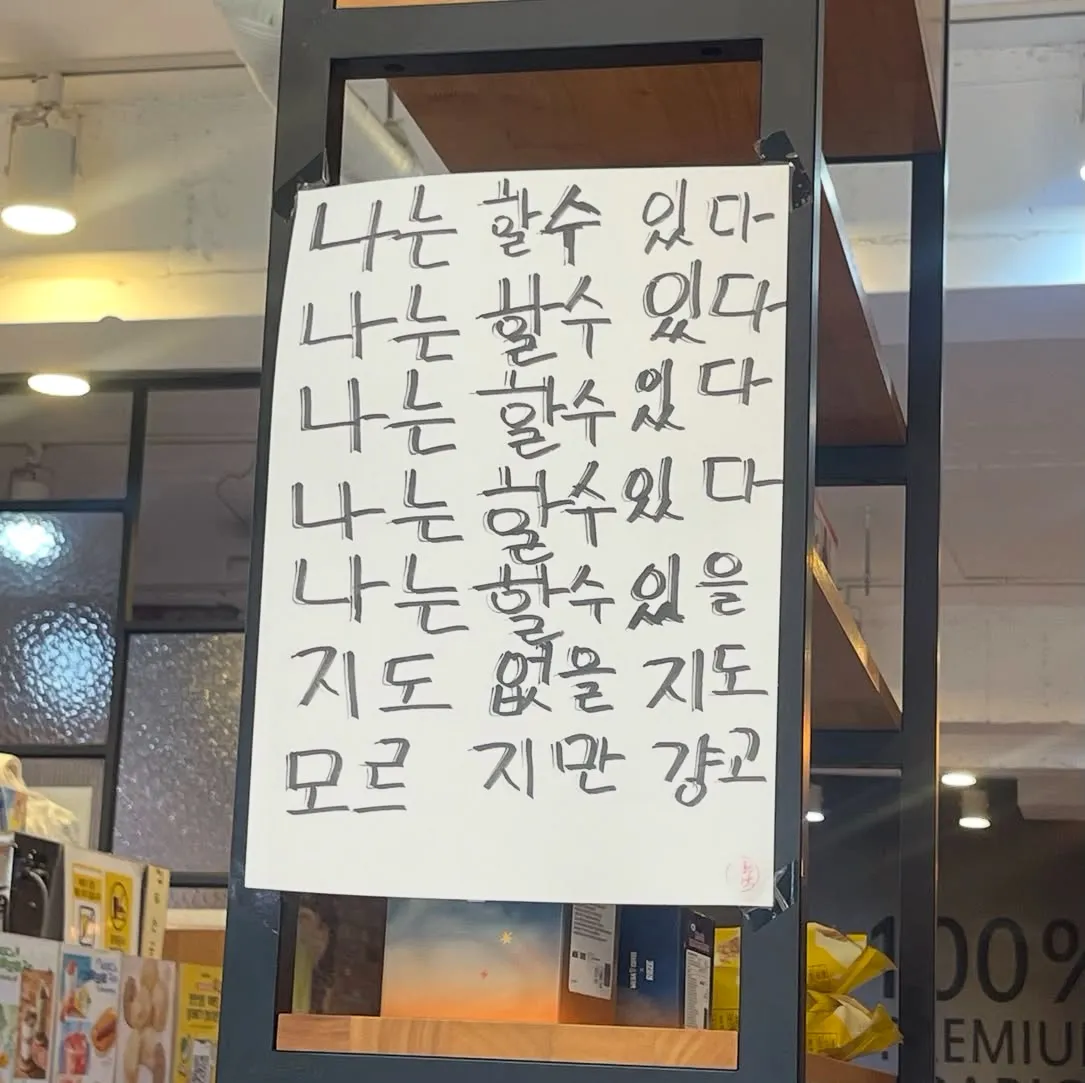 나는 할수 있다
나는 할수 있다
나는 할수 있다
나는 할수 있다
나는 할수 있을
지도 없을 지도
모르 지만 걍고
100%